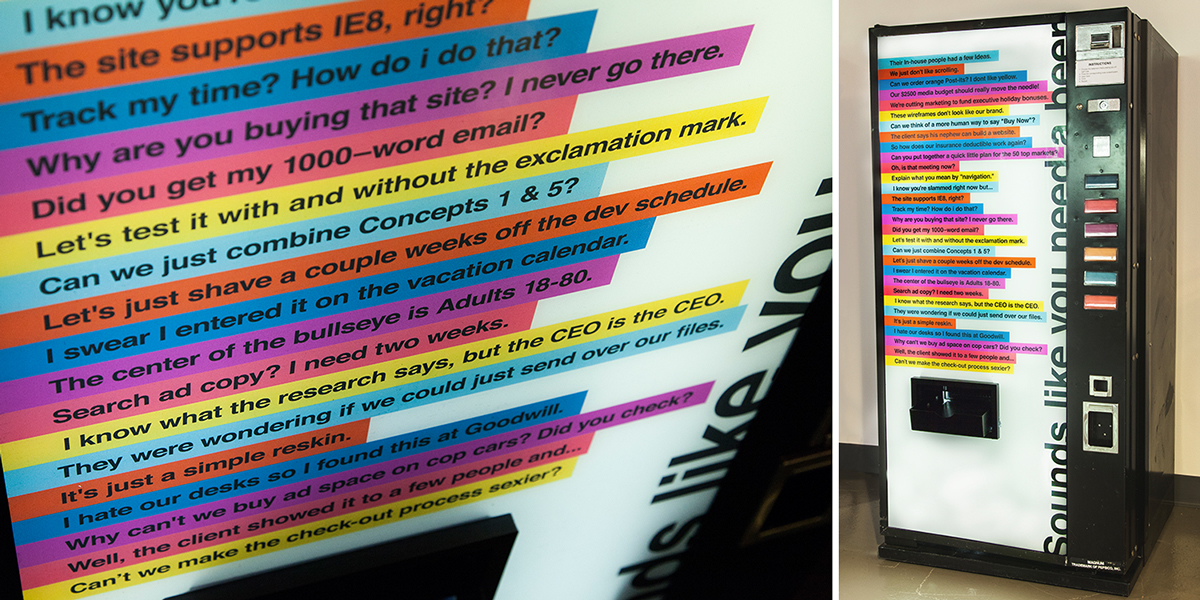 I know you're
The site supports IE8, right?
Track my time? How do i do that?
Why are you buying that site? I never go there.
Did you get my 1000–word email?
Let's test it with and without the exclamation mark.
Can we just combine Concepts 1 & 5?
Let's just shave a couple weeks off the dev schedule.
I swear I entered it on the vacation calendar.
The center of the bullseye is Adults 18-80.
Search ad copy? I need two weeks.
I know what the research says, but the CEO is the CEO.
They were wondering if we could just send over our files.
It's just a simple reskin.
I hate our desks so I found this at Goodwill.
Why can't we buy ad space on cop cars? Did you check?
Well, the client showed it to a few people and...
Can't we make the check-out process sexier?
ds like you
Their in-house people had a few ideas.
We just don't like scrolling.
Can we order orange Post-its? I dont like yellow.
Our $2500 media budget should really move the needle!
We're cutting marketing to fund executive holiday bonuses.
These wireframes don't look like our brand.
Can we think of a more human way to say "Buy Now"?
The client says his nephew can build a website.
So how does our insurance deductible work again?
Can you put together a quick little plan for the 50 top markets?
Oh, is that meeting now?
Explain what you mean by "navigation."
I know you're slammed right now but...
The site supports IE8, right?
Track my time? How do i do that?
Why are you buying that site? I never go there.
Did you get my 1000-word email?
Let's test it with and without the exclamation mark.
Can we just combine Concepts 1 & 5?
Let's just shave a couple weeks off the dev schedule.
I swear I entered it on the vacation calendar.
The center of the bullseye is Adults 18-80.
Search ad copy? I need two weeks.
I know what the research says, but the CEO is the CEO.
They were wondering if we could just send over our files.
It's just a simple reskin.
I hate our desks so I found this at Goodwill.
Why can't we buy ad space on cop cars? Did you check?
Well, the client showed it to a few people and...
Can't we make the check-out process sexier?
Sounds like you need a beer
INSTRUCTIONS
MAGNUM
TRADEMARK OF PEPSICO, INC.